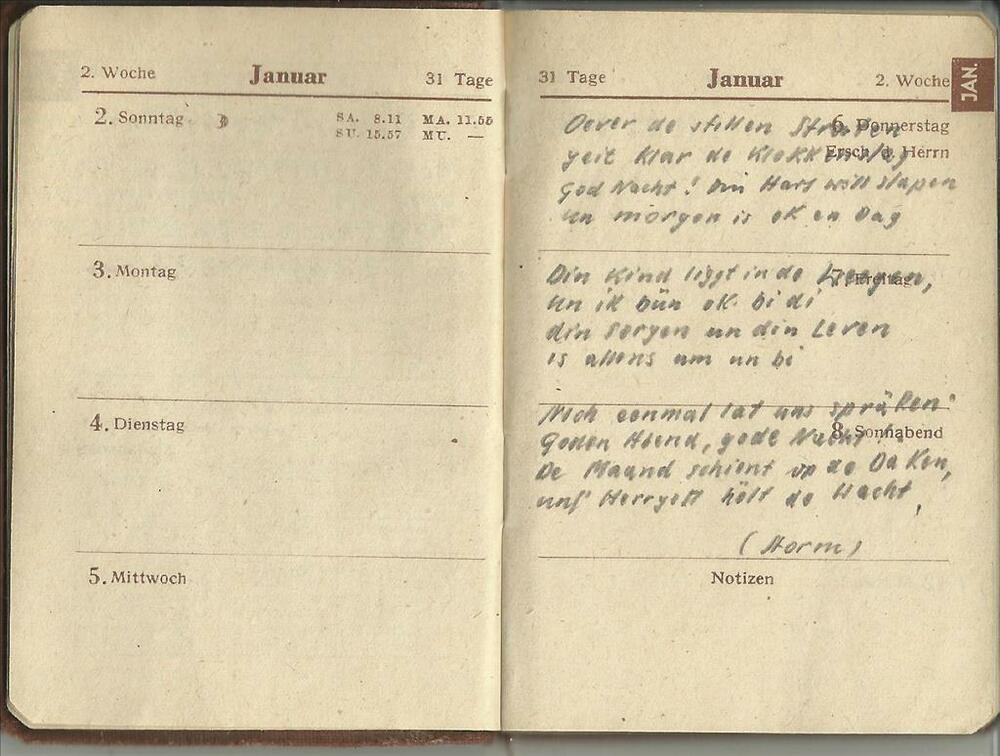 2. Woche Januar 31 Tage
2. Sonntag SA. 8.11 MA. 11.55
SU. 15.57 MU. —
3. Montag
4. Dienstag
5. Mittwoch
31 Tage Januar 2. Woche
JAN.
6. Donnerstag
Ersch. d. Herrn
Oever de stillen Straten
geit klar de Klokkenslag
God Nacht! Din Hart will slapen
un morgen is ok en Dag
7. Freitag
Din Kind liggt in de Weegen,
un ik bün ok bi di
din Sorgen un din Leven
is allens um un bi
Noch eenmal lat uns spräken
8. Sonnabend
Goden Abend, gode Nacht
De Maand schient op de Daken,
uns' Herrgott hölt de Wacht.
(Storm)
Notizen